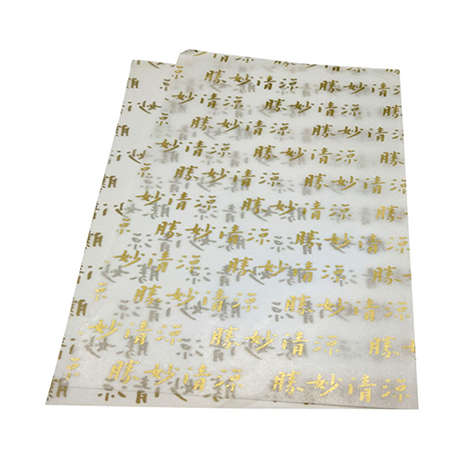 勝妙清涼
勝妙清涼
勝妙清涼
勝妙清涼
勝妙清涼
妙清涼 勝妙清涼
勝妙清涼
勝妙清涼
勝妙清涼 勝妙清涼
勝妙清涼 勝妙
勝妙清涼 勝妙清涼